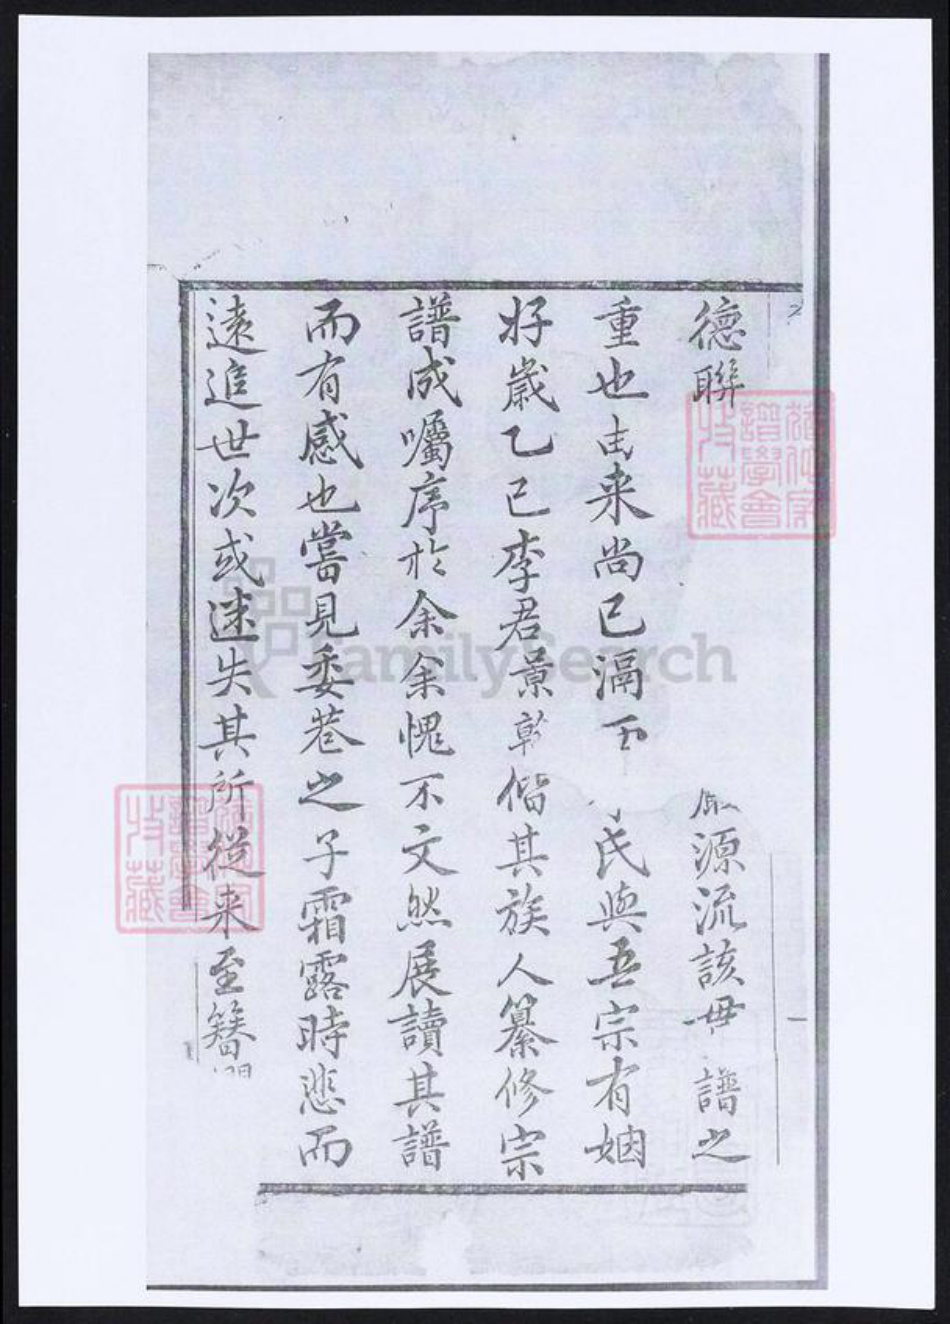 德聯 源流該毋 譜之
重也由来尚已滆 氏與吾宗有姻
好歳乙已李君景乾偕其族人纂修宗
譜成囑序於余余愧不文然展讀其譜
而有感也嘗見委巷之子霜露時悲而
遠追世次或迷失其所從来至簪
譜學會
收藏
FamilySearch